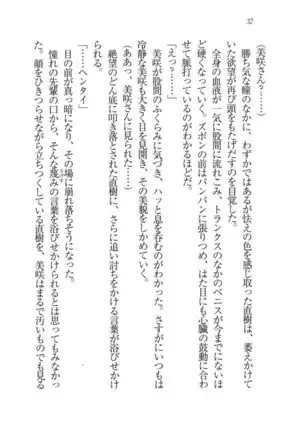 32
(美咲さん……?)
勝ち気な瞳のなかに、わずかではあるが怯えの色を感じ取った直樹は、萎えかけて
いた欲望が再び頭をもたげだすのを自覚した。
全身の血液が一気に股間に流れこみ、トランクスのなかのペニスが今までにないほ
ど硬くなっていく。ズボンの前はパンパンに張りつめ、はた目にも心臓の鼓動に合わ
せて脈打っているのがわかるほどだ。
「えっ?」
美咲が股間のふくらみに気づき、ハッと息を呑むのがわかった。さすがにいつもは
冷静な美咲も大きく目を見開き、その美貌をしかめていく。
(ああっ、美咲さんに見られた……)
絶望のどん底に叩き落とされた直樹に、さらに追い討ちをかける言葉が浴びせかけ
られる。
「……ヘンタイ」
目の前が真っ暗になり、その場に崩れ落ちそうになった。
憧れの先輩の口から、そんな蔑みの言葉を浴びせかけられるとは思ってもみなかっ
た。顔をひきつらせながら立ちつくしている直樹を、美咲はまるで汚いものでも見る